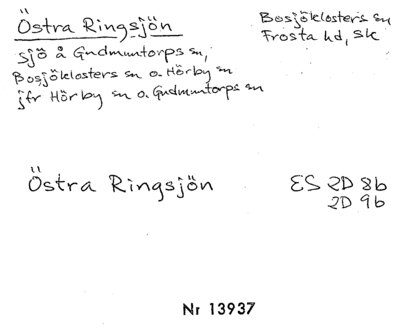 Östra Ringsjön
Bosjöklosters sn
Frosta hd, Sk
sjö å Gudmuntorps sn,
Bosjöklosters sn o. Hörby sn
jfr Hörby sn o. Gudmuntorps sn
Östra Ringsjön
ES 2D 8b
2D 9b
Nr 13937